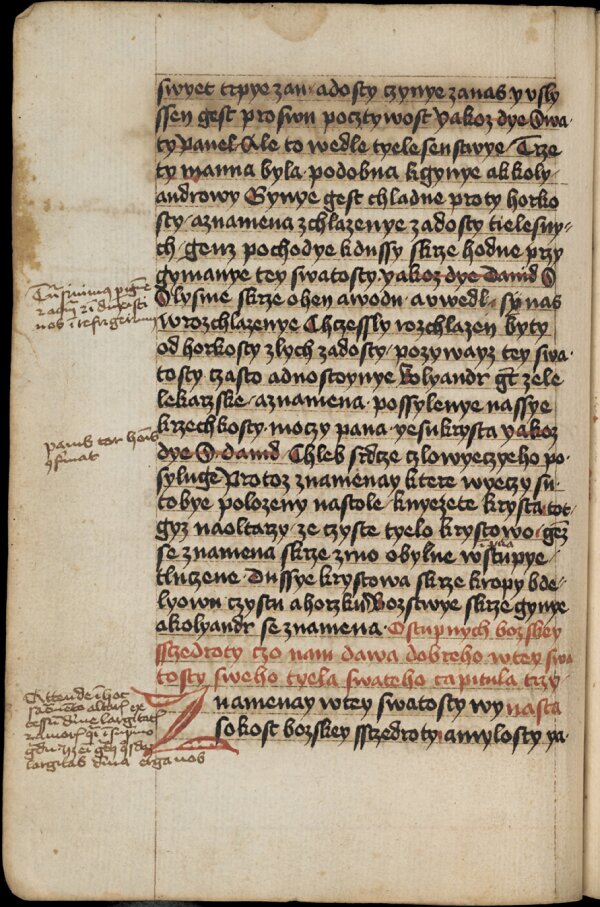 swyet trpye zan adosty czynye zanas y vsly
ssen gest proswu pocztywost yakoz dye Swa
ty Panel Ale to wedle tyelesenstwye Trze
ty manna byla podobna kgynye akkoly
androwy Gynye gest chladne proty horko
sty aznamena zchlazenye zadosty tielesny
ch genz pochodye kdussy skrze hodne przy
gymanye tey swatosty yakoz dye Dauid S
Slysme skrze ohen awodu avwedl sy nas
wrozchlazenye Chczessly rozchlazen byty
od horkosty zlych zadosty pozyway z tey swa
tosty czasto adnostoynye Kolyandr gt zele
lekarzske aznamena possylenye nassye
krzechkosty moczy pana yesukrysta yakoz
dye S dauid Chleb srdcze czlowyeczyeho po
syluge Protoz znamenay ktere wyeczy su
tobye polozeny nastole knyezete krysta tot
gyz naoltarzy ze czyste tyelo krystowo gez
se znamena skrze zrno obylne wstupye
tluczene Dussye krystowa skrze kropy bde
lyowu czystu ahorzku Bozstwye skrze gynye
akolyandr se znamena Ostupnych bozskey
sszedroty czo nam dawa dobreho wtey swa
tosty sweho tyela swateho capitula trzy
Znamenay wtey swatosty wy nasta
sokost bozskey sszedroty amylosty ya
panis cor hois
9firmat
Attende i hoc
largitas diuina erga nos